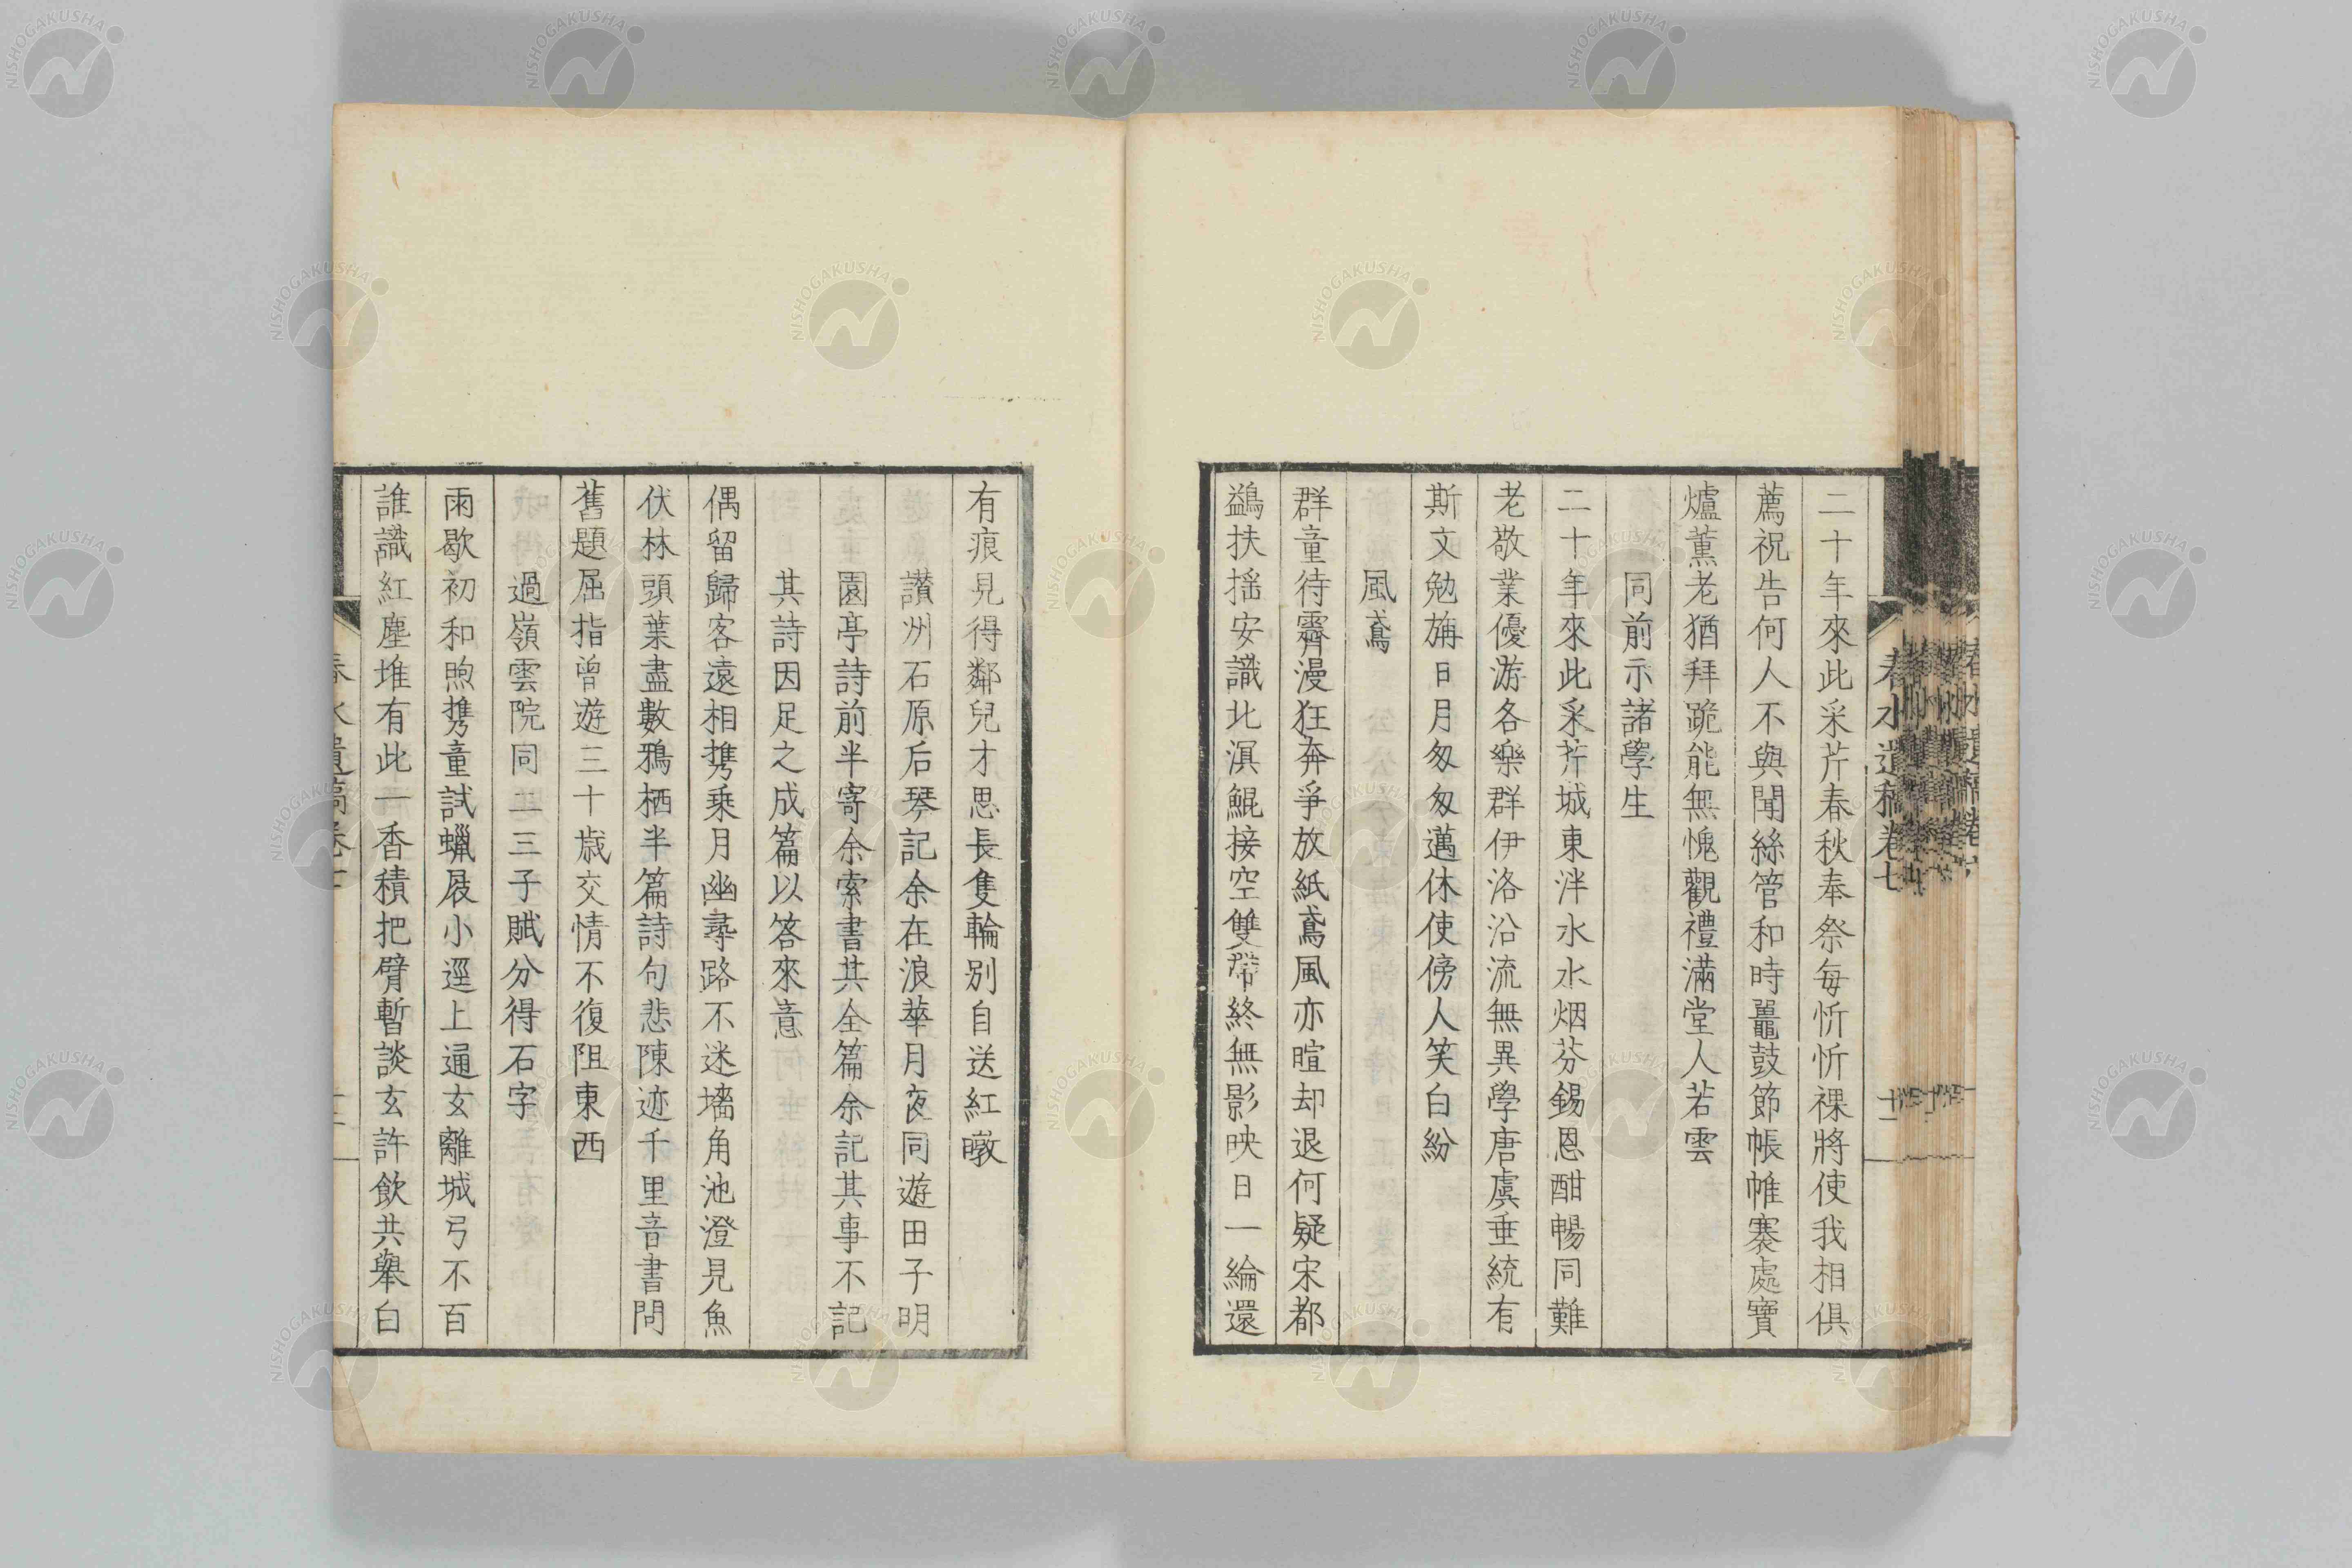 春水遺稿卷七
十二
二十年來此采芹春秋奉祭每忻忻祼將使我相俱
薦祝告何人不與聞絲管和時鼉鼓節帳帷褰處寶
爐薰老猶拜跪能無愧觀禮滿堂人若雲
同前示諸學生
二十年來此采芹城東泮水水烟芬錫恩酣暢同難
老敬業優游各樂群伊洛沿流無異學唐虞垂統有
斯文勉旃日月匆匆邁休使傍人笑白紛
風鳶
群童待霽漫狂奔爭放紙鳶風亦暄却退何疑宋都
鷁扶搖安識北溟鯤接空雙帶終無影映日一綸還
有痕見得鄰兒才思長隻輪別自送紅暾
讃州石原后琴記余在浪華月夜同遊田子明
園亭詩前半寄余索書其全篇余記其事不記
其詩因足之成篇以答來意
偶留歸客遠相携乘月幽尋路不迷墻角池澄見魚
伏林頭葉盡數鴉栖半篇詩句悲陳迹千里音書問
舊題屈指曾遊三十歲交情不復阻東西
過嶺雲院同二三子賦分得石字
雨歇初和煦携童試蠟屐小逕上通玄離城弓不百
誰識紅塵堆有此一香積把臂暫談玄許飲共舉白
NISHOGAKUSHA